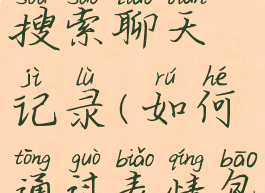 搜索聊天
jì lù rú hé
记录(如何
tōng guò biǎo qíng bāo
通过表情包